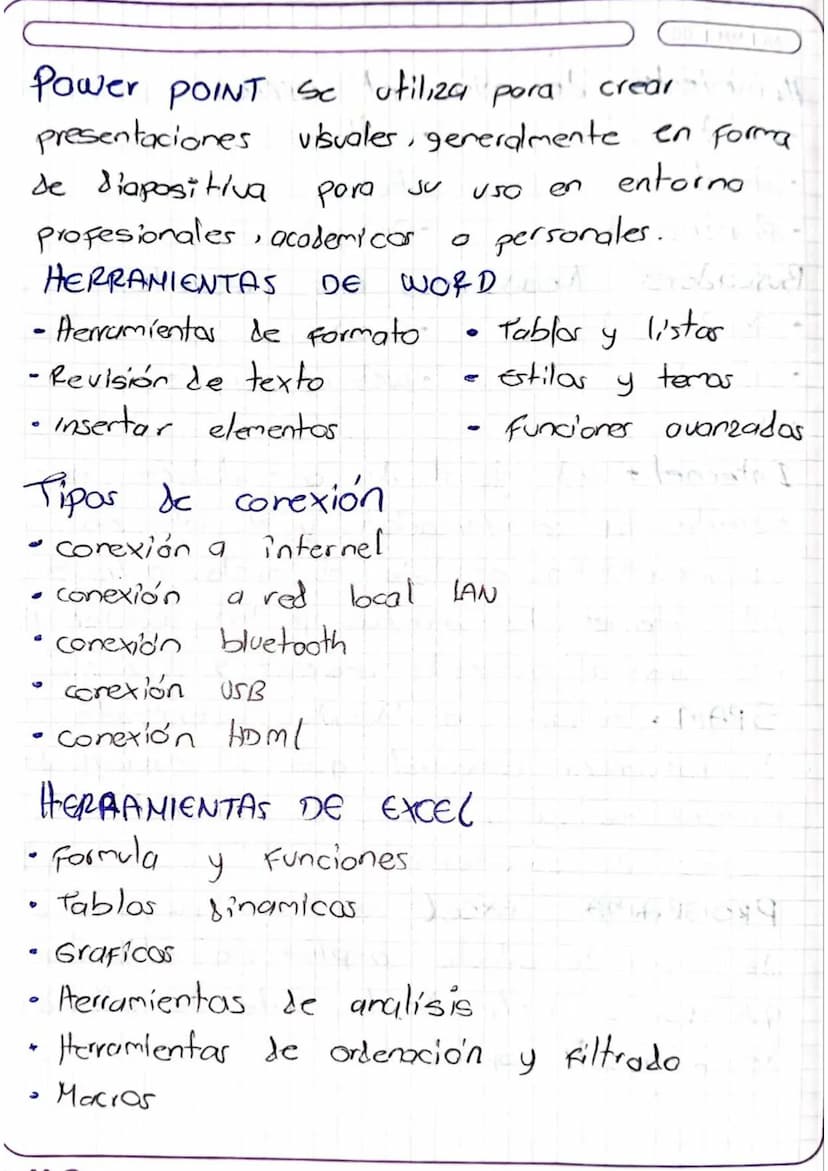 Power POINT se utiliza para crear
presentaciones visuales, generalmente en forma
de diapositiva para su uso en entorno
profesionales, academicos o personales.
HERRAMIENTAS DE WORD
- Herramientas de formato • Tablas y listas
- Revisión de texto - Estilos y temas
• Insertar elementos - funciones avanzadas
Tipos de conexión
• conexión a internet
• conexión a red local LAN
• conexión bluetooth
• conexión USB
• conexión HDMI
HERRAMIENTAS DE EXCEL
• Formula y Funciones
• Tablas dinamicas
• Graficos
• Herramientas de analísis
• Herramientas de ordenación y Filtrado
• Macros